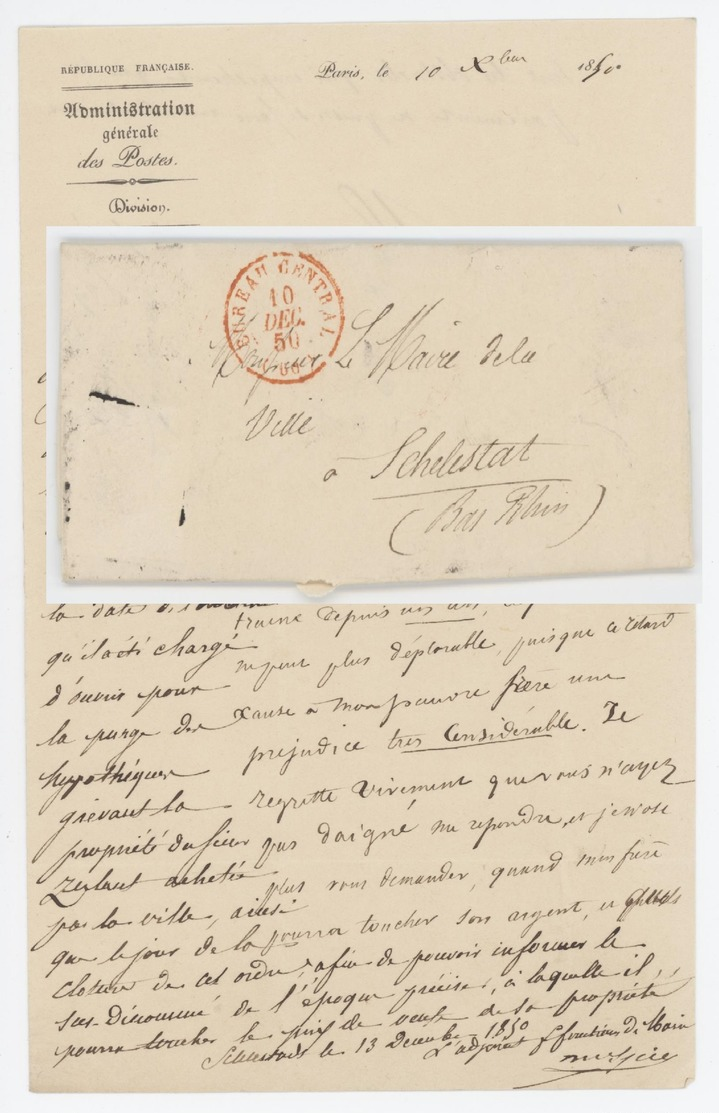 RÉPUBLIQUE FRANÇAISE.
Paris, le 10 Xbre 1850
Administration
générale
des Postes.
Division.
BUREAU CENTRAL
10
DEC.
50
Monsieur Le Maire de la
Ville
à Schelestat
(Bas Rhin)
la date
traine depuis un an,
qu'il a été chargé
ne peut plus déplorable, puisque ce retard
d'ouvrir pour
cause à mon pauvre frère une
la purge des
préjudice très Considérable. Je
hypothèques
regrette vivement que vous n'ayez
grévant la
pas daigné me repondre, et je n'ose
propriété du sieur
plus vous demander, quand mon frère
achetée
pourra toucher son argent, et
par la ville, ainsi
que le jour de la
cloture de cet ordre, afin de pouvoir informer le
sus-Dénommé de l'époque précise, à laquelle il
pourra toucher le prix de vente de sa propriété
le 13 Decembre 1850
L'adjoint ff fonctions de Maire